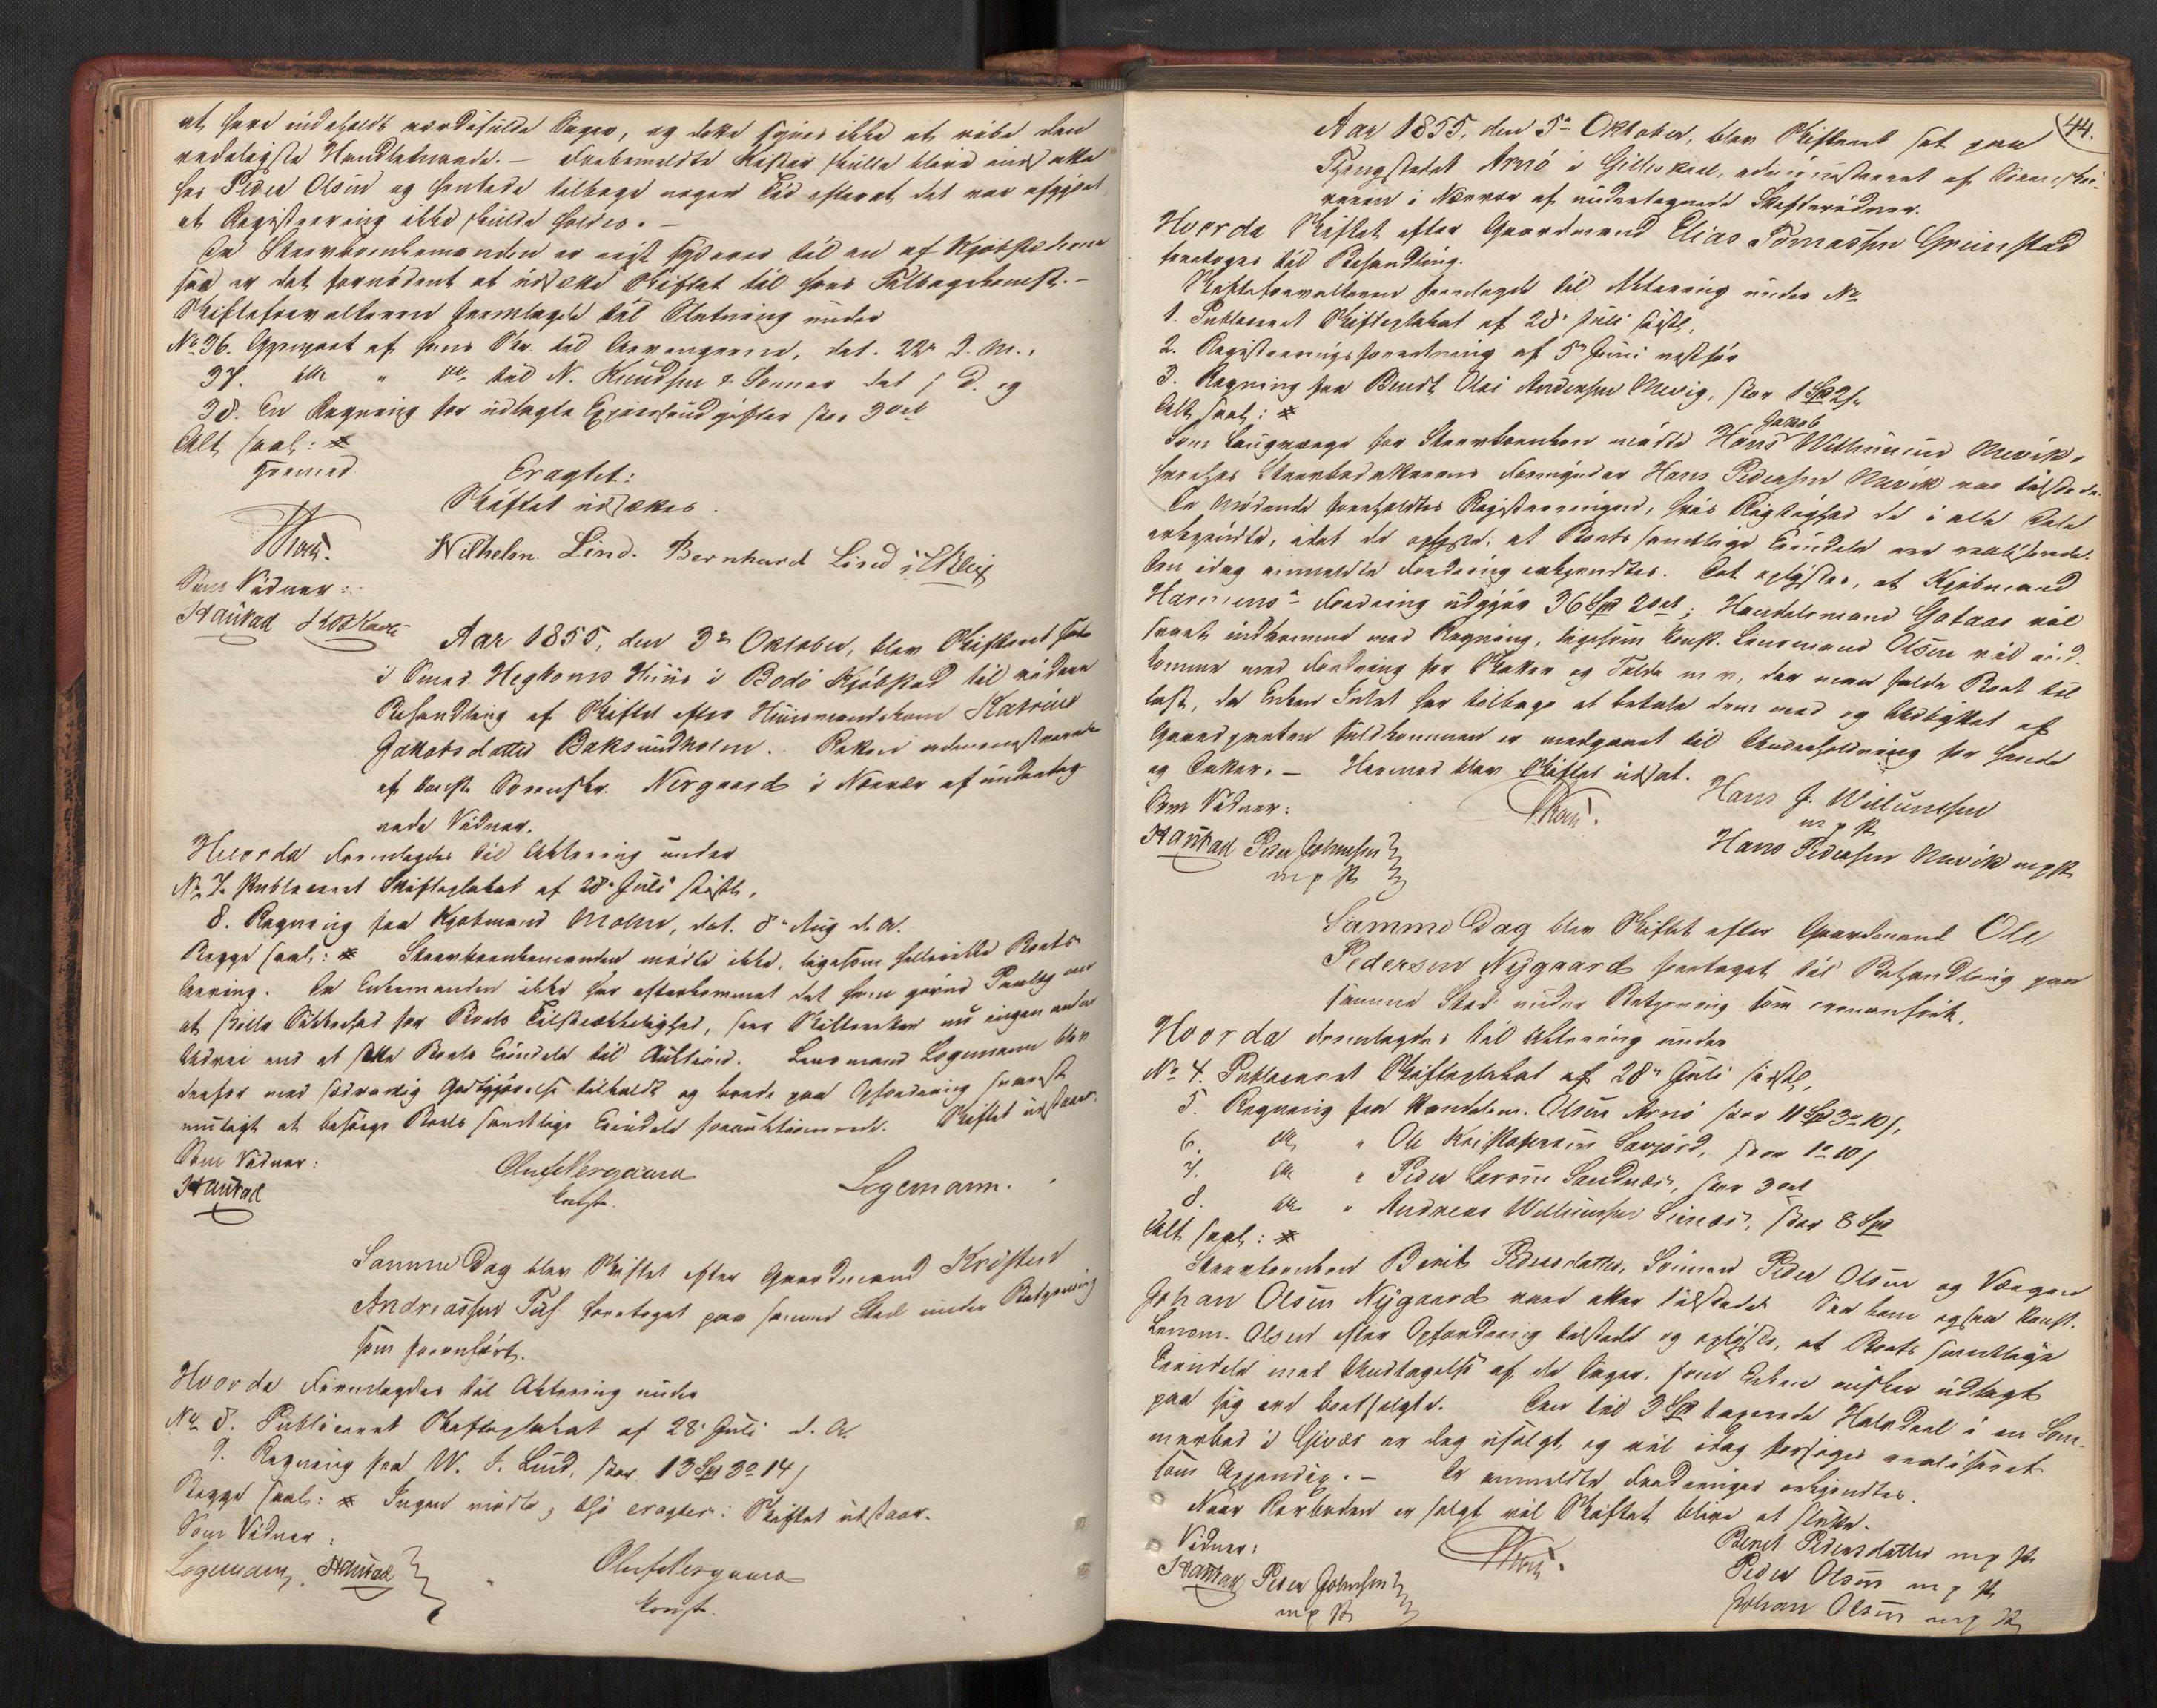 at have indeholdt værdifulde Sager, og dette synes ikke at røbe den
redeligste Handlemaade. — Forbemeldte Kister skulle blive indsatte
hos Peder Olsen og hentede tilbage nogen Tid efterat det var afgjort
at Registrering ikke skulde holdes. —
Da Sterboenkemanden er reist
saa er det fornødent at udsætte Skiftet til hans Tilbagekomst. —
Skifteforvalteren fremlagde til Slutning under
No 36. Genpart af hans Skr. til Arvingerne, dat. 22de d. M.,
37. do " do til N. Knudsen & Sønner dat s. D. og
38. En Regning for udlagte Expeditionsudgifter stor 3 Ort
Alt saal: *
Hermed Eragtet:
Skiftet udsættes.
Wilhelm Lind. Bernhard Lind
Som Vidner:
Haurad
Aar 1855, den 3de Oktober, blev Skifteret sat
i Hegtoms Huus i Bodø Kjøbstad til videre
Behandling af Skiftet efter Huusmandskone Katrine
Jakobsdatter Baksundholm. Retten administreret
af konst. Sorenskr. Nergaard i Nærvær af undertegnede
Vidner.
Hvorda Fremlagdes til Aktering under
No 7. Publiceret Skifteplakat af 28de Juli sidstl.
8. Regning fra Kjøbmand Moln, dat. 8de Aug d. A.
Begge saal: * Sterboenkemanden mødte ikke, ligesom hellerikke Boets
Arving. Da Enkemanden ikke har efterkommet det ham givne Paalæg om
at stille Sikkerhed for Boets Tilstrækkelighed, saa Skifteretten nu ingen anden
Udvei end at sætte Boets Eiendele til Auktion. Lensmand Logemann blev
derfor med sædvanlig Godtgjørelse tilholdt og bad paa Opfordring snarest
muligt at besørge Boets samtlige Eiendele forauktionerede. Skiftet udstaar.
Som Vidner:
Haurad Oluf Nergaard Logemann.
konst.
Samme Dag blev Skiftet efter Gaardmand Kristen
Andreassen Tuf foretaget paa samme Sted under Betjening
som foranført.
Hvorda Fremlagdes til Aktering under
No 8. Publiceret Skifteplakat af 28de Juli d. A.
9. Regning fra W. J. Lind, stor 13 Spd 3 Ort 14 s
Begge saal: * Ingen mødte, thi eragtes: Skiftet udstaar.
Som Vidner:
Logemann, Haurad Oluf Nergaard
konst.
44.
Aar 1855, den 5te Oktober, blev Skifteret sat paa
Thingstedet Arnø i Gilleskaal, administreret af Sorenskriveren
i Nærvær af undertegnede Skiftevidner.
Hvorda Skiftet efter Gaardmand Elias Tomassen Grimstad
foretages til Behandling.
Skifteforvalteren fremlagde til Aktering under No
1. Publiceret Skifteplakat af 28de Juli sidstl.
2. Registreringsforretning af 5te Juni næstfør
3. Regning fra Bendt Olai Andersen Mevig, stor 1 Spd 2 s.
Alt saal: *
Jakob
Som Laugværge for Sterboenken mødte Hans Willumsen Mevik,
hvorhos Sterbodatterens Formynder Hans Pedersen Mevik var tilstede.
De Mødende foreholdtes Registreringen, hvis Rigtighed de i alle Dele
erkjendte, idet de oplyste, at Boets samtlige Eiendele ere realiserede.
Den idag anmeldte Fordring erkjendtes. Det oplystes, at Kjøbmand
Harmens's Fordring udgjør 36 Spd 2 Ort; Handelsmand Gotaas vil
snart indkomme med Regning, ligesom konst. Lensmand Olsen vil indkomme
med Fordring for Skatter og Tolde m v, der maa holde Boet til
last, da Enken Intet har tilbage at betale dem med og Udbyttet af
Gaardparten fuldkommen er medgaaet til Underholdning for hende
og Datter. — Hermed blev Skiftet udsat.
Som Vidner: Hans J. Willumsen
m p P
Haurad Peder Johnsen Hans Pedersen Mevik m p P
m p P
Samme Dag blev Skiftet efter Gaardmand Ole
Pedersen Nygaard foretaget til Behandling paa
samme Sted under Betjening som ovenanført.
Hvorda Fremlagdes til Aktering under
No 4. Publiceret Skifteplakat af 28de Juli sidstl.
5. Regning fra Handelsm. Olsen Arnø stor 11 Spd 3 Ort 10 s,
6. do " Ole Kristofersen Savjord, stor 1 Ort 10 s
7. do " Peder Larsen Sandnæs, stor 3 Ort
8. do " Andreas Willumsen Sunæs, stor 8 Spd
Alt saal: *
Sterboenken Berit Pedersdatter, Sønnen Peder Olsen og Værgen
Johan Olsen Nygaard vare atter tilstede. Saa kom ogsaa konst.
Lensm. Olsen efter Opfordring tilstede og oplyste, at Boets samtlige
Eiendele med Undtagelse af de Sager, som Enken ønsker udlagt
paa sig ere bortsolgte. Den til 3 Spd taxerede Halvdeel i en
i Givær er dog usolgt, og vil idag forsøges realiseret
som Appendix. — De anmeldte Fordringer erkjendtes.
Naar Rorboden er solgt vil Skiftet blive at slutte.
Vidner: Berit Pedersdatter m p P
Haurad Peder Johnsen Peder Olsen m p P
m p P Johan Olsen m p P